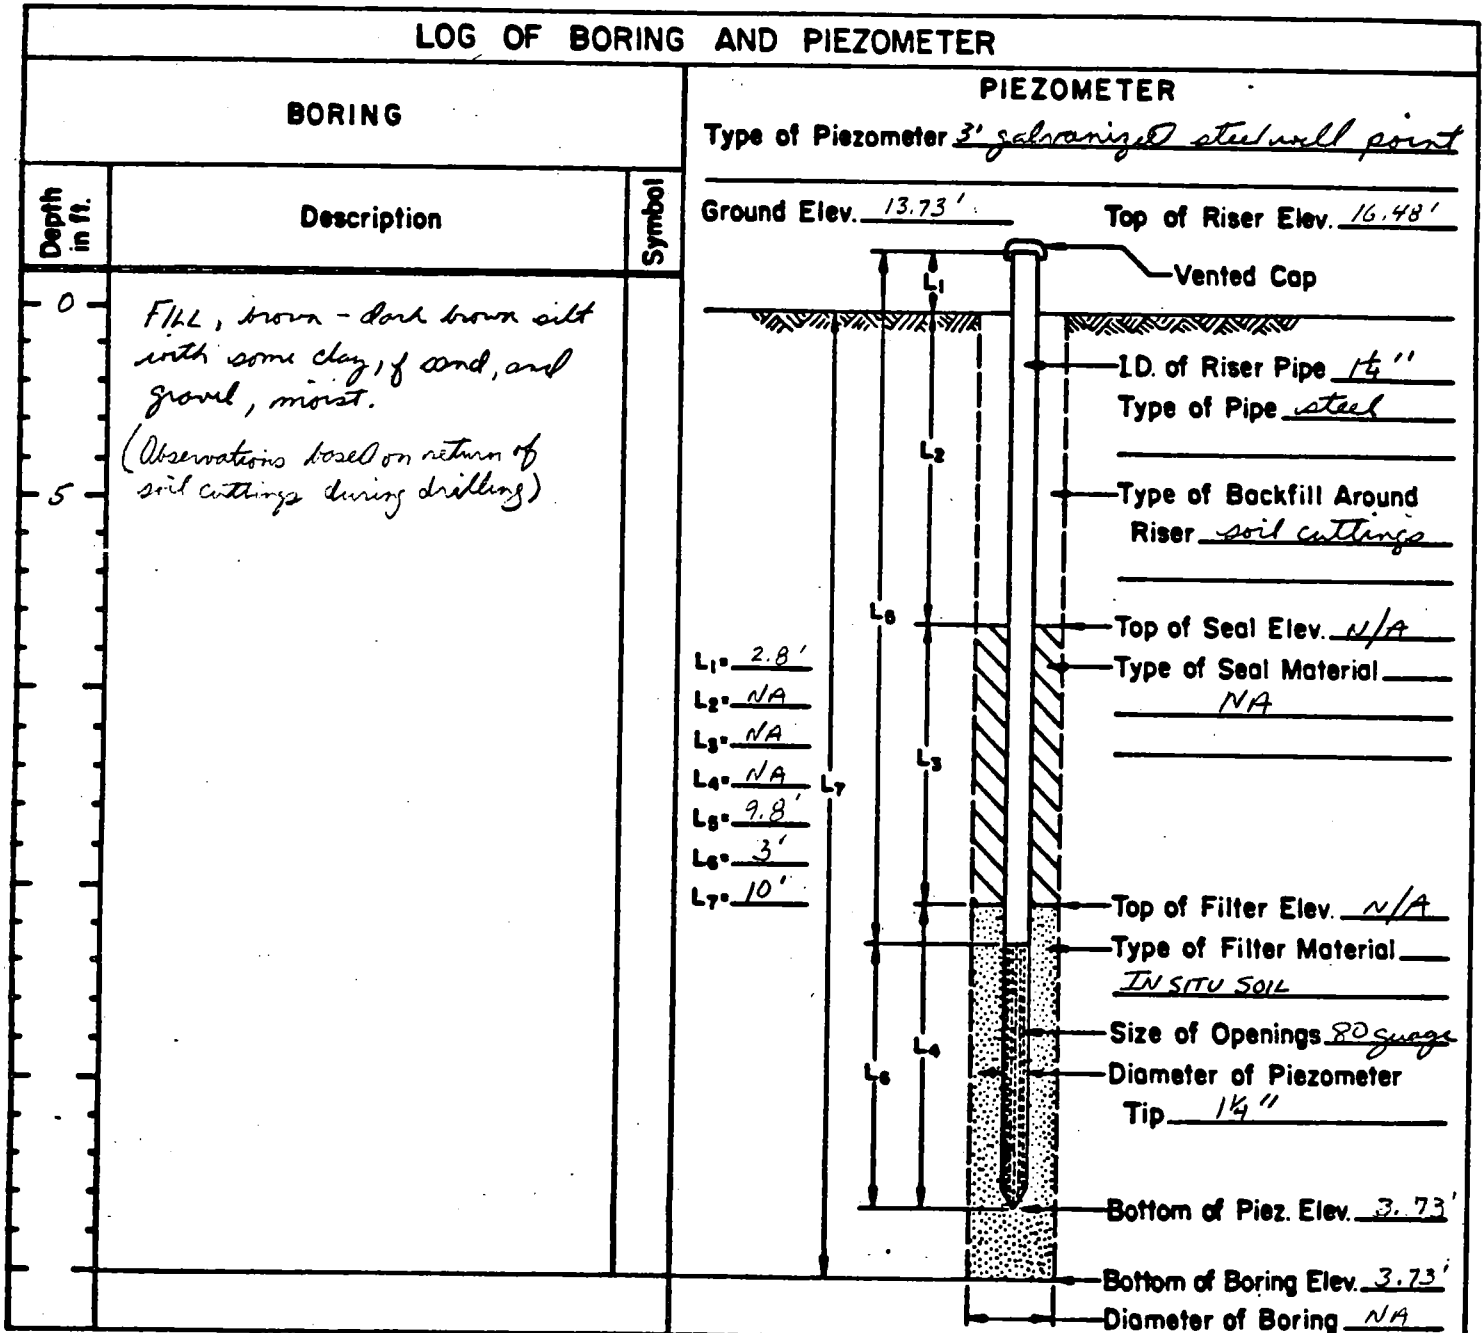 LOG OF BORING AND PIEZOMETER
BORING
Depth in ft.
Description
Symbol
0
FILL, brown - dark brown silt
with some clay, f sand, and
gravel, moist.
(Observations based on return of
soil cuttings during drilling)
5
PIEZOMETER
Type of Piezometer 3' galvanized steel well point
Ground Elev. 13.73' Top of Riser Elev. 16.48'
Vented Cap
L1
I.D. of Riser Pipe 1¼"
Type of Pipe steel
L2
Type of Backfill Around
Riser soil cuttings
L5
Top of Seal Elev. N/A
Type of Seal Material
NA
L1= 2.8'
L2= NA
L3= NA
L4= NA
L5= 9.8'
L6= 3'
L7= 10'
L3
L7
Top of Filter Elev. N/A
Type of Filter Material
IN SITU SOIL
Size of Openings 80 guage
L4
L6
Diameter of Piezometer
Tip 1¼"
Bottom of Piez. Elev. 3.73'
Bottom of Boring Elev. 3.73'
Diameter of Boring NA